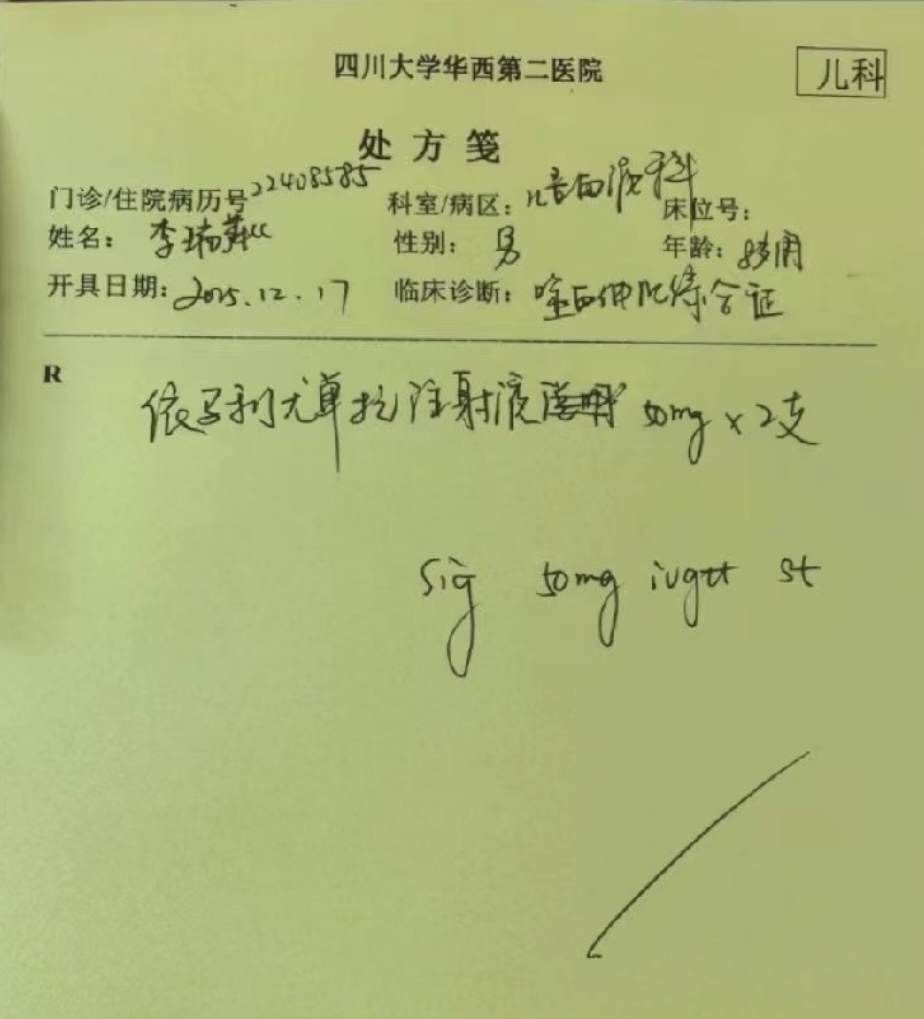 四川大学华西第二医院 儿科
处方笺
门诊/住院病历号 22408585 科室/病区: 儿童血液科 床位号:
姓名: 李 性别: 男 年龄:
开具日期: 2025.12.17 临床诊断: 噬血细胞综合证
R
依马利尤单抗注射液 50mg x 2支
Sig 50mg ivgtt st